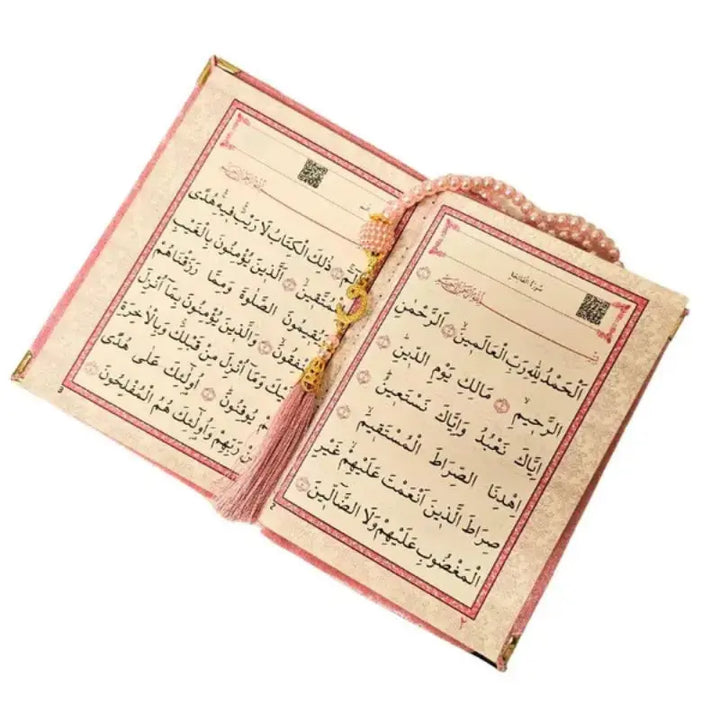 سورة الفاتحة
اَلْحَمْدُ لِلّٰهِ رَبِّ الْعَالَمٖينَۙ اَلرَّحْمٰنِ
الرَّحٖيمِۙ مَالِكِ يَوْمِ الدّٖينِۜ
اِيَّاكَ نَعْبُدُ وَاِيَّاكَ نَسْتَعٖينُۜ
اِهْدِنَا الصِّرَاطَ الْمُسْتَقٖيمَۙ
صِرَاطَ الَّذٖينَ اَنْعَمْتَ عَلَيْهِمْۙ غَيْرِ
الْمَغْضُوبِ عَلَيْهِمْ وَلَا الضَّٓالّٖينَ
٢
2
الٓمٓۜ ذٰلِكَ الْكِتَابُ لَا رَيْبَۚ فٖيهِۚ هُدًى
لِلْمُتَّقٖينَۙ اَلَّذٖينَ يُؤْمِنُونَ بِالْغَيْبِ
وَيُقٖيمُونَ الصَّلٰوةَ وَمِمَّا رَزَقْنَاهُمْ
يُنْفِقُونَۙ وَالَّذٖينَ يُؤْمِنُونَ بِمَٓا اُنْزِلَ
اِلَيْكَ وَمَٓا اُنْزِلَ مِنْ قَبْلِكَۚ وَبِالْاٰخِرَةِ
هُمْ يُوقِنُونَۜ اُو۬لٰٓئِكَ عَلٰى هُدًى
مِنْ رَبِّهِمْ وَاُو۬لٰٓئِكَ هُمُ الْمُفْلِحُونَ